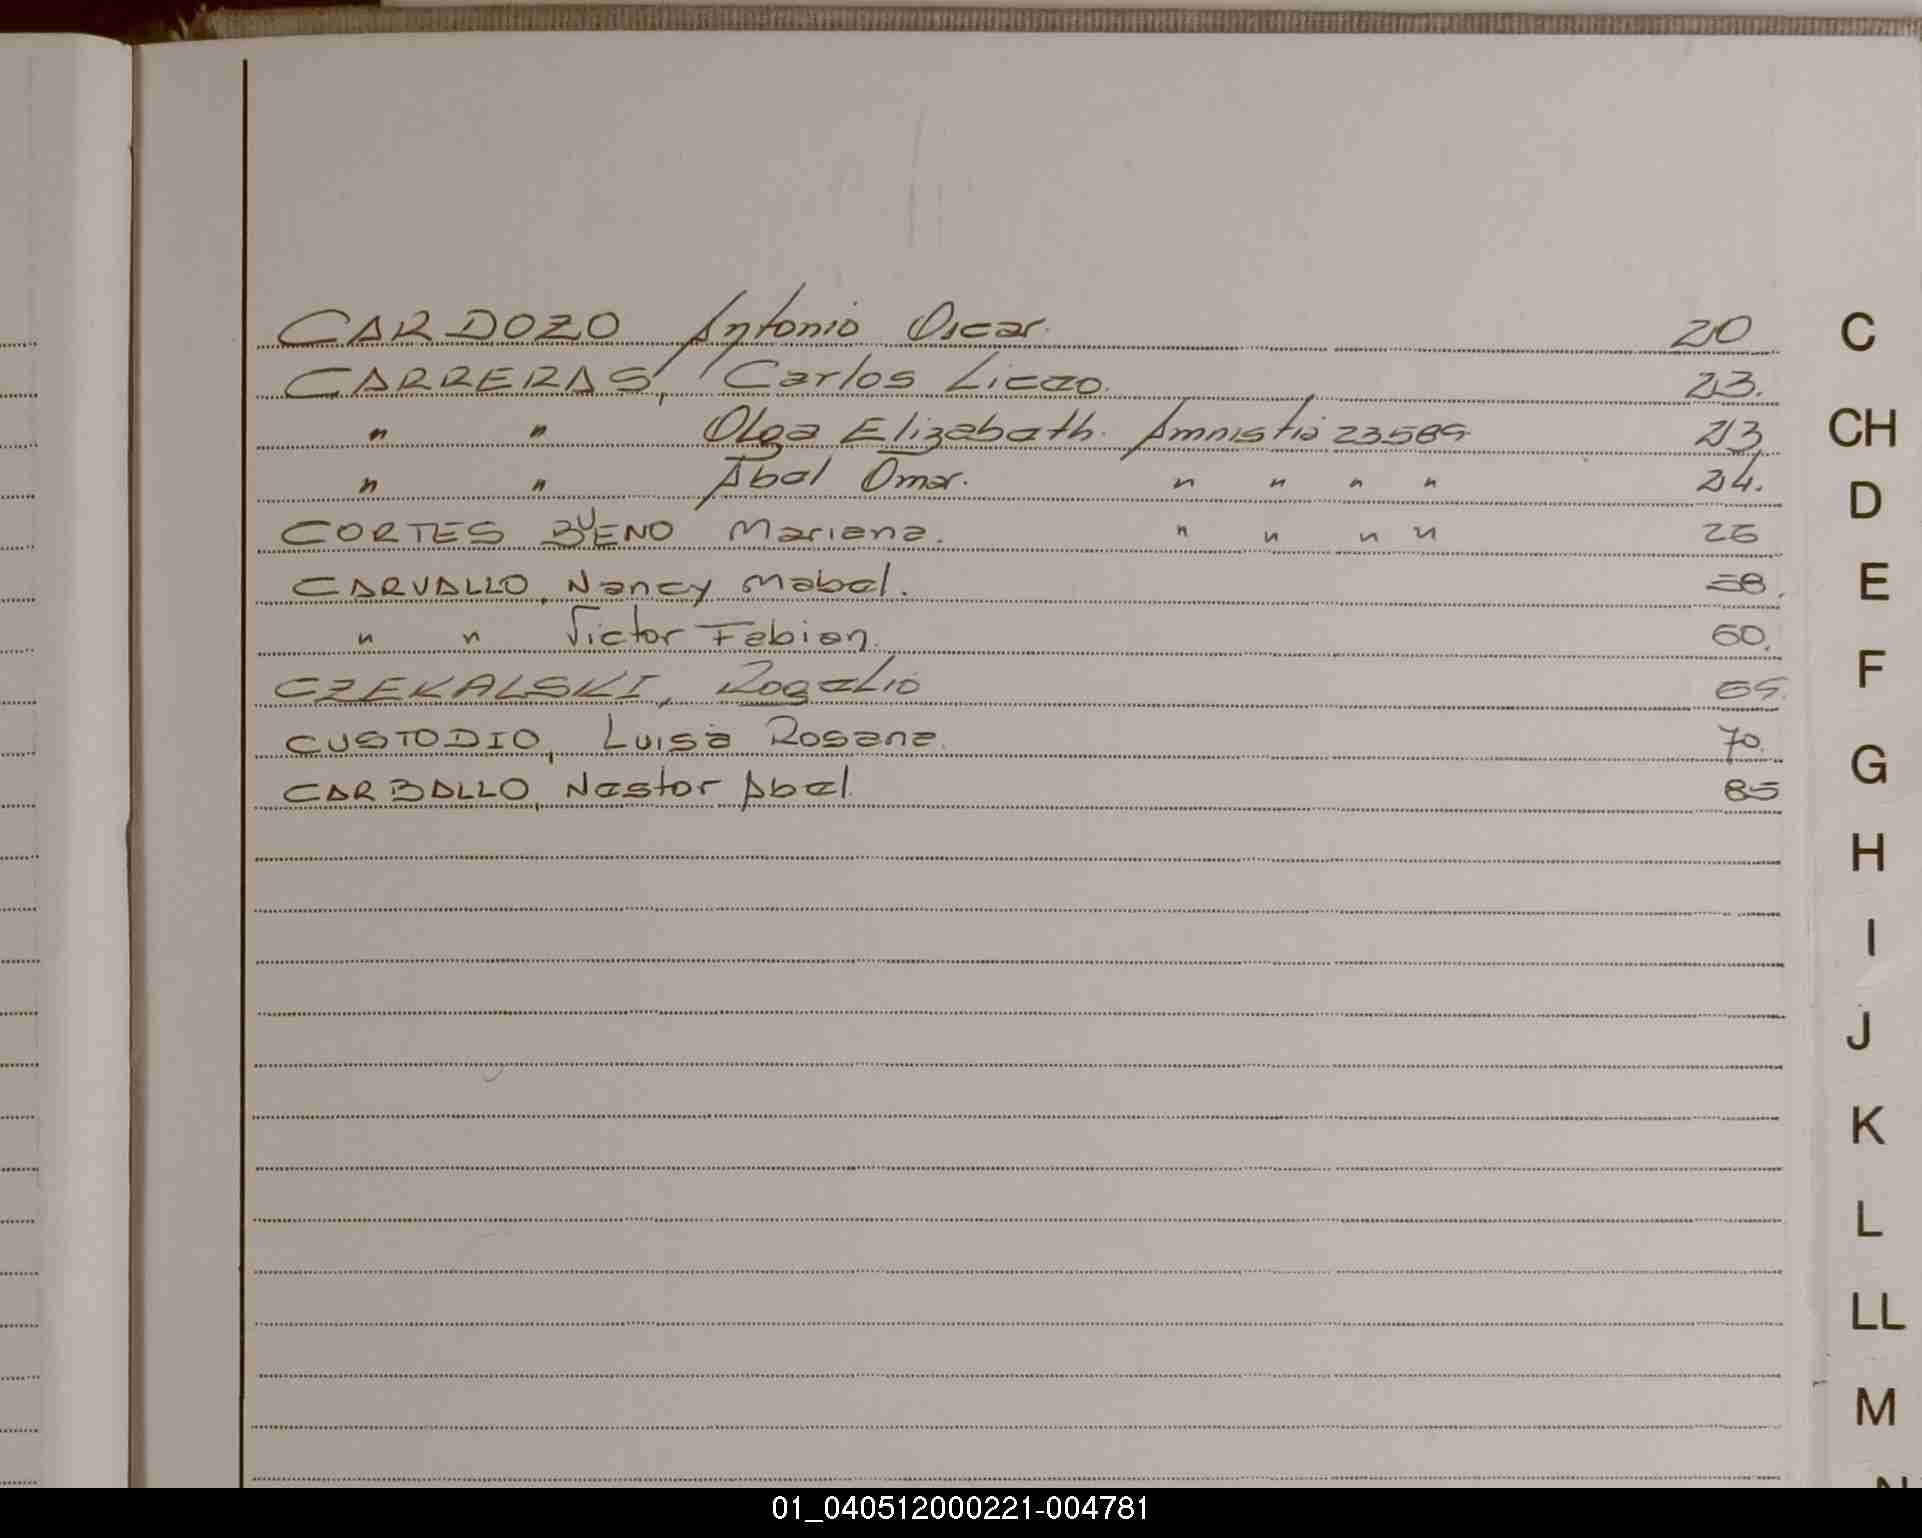 CARDOZO Antonio Oscar. 20
CARRERAS, Carlos Liceo. 23.
" " Olga Elizabeth. Amnistia 23589 23
" " Abel Omar. " " " " 24.
CORTES BUENO Mariana. " " " " 26
CARVALLO, Nancy Mabel. 58.
" " Victor Fabian. 60.
CZEKALSKI, Rogelio 69.
CUSTODIO, Luisa Rosana. 70.
CARBALLO, Nestor Abel. 85
C
CH
D
E
F
G
H
I
J
K
L
LL
M
N
01_040512000221-004781